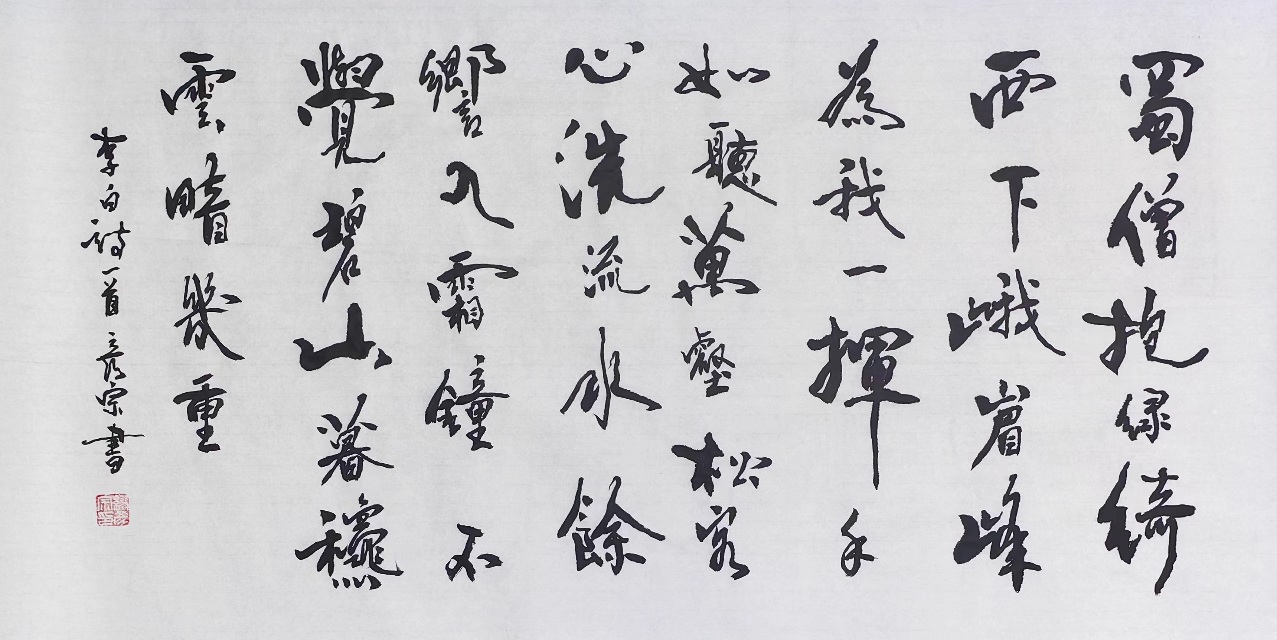 蜀僧抱绿綺
西下峨眉峰
為我一揮手
如聽萬壑松客
心洗流水餘
響入霜鐘不
覺碧山暮穐
雲暗幾重
李白詩一首彦宗書